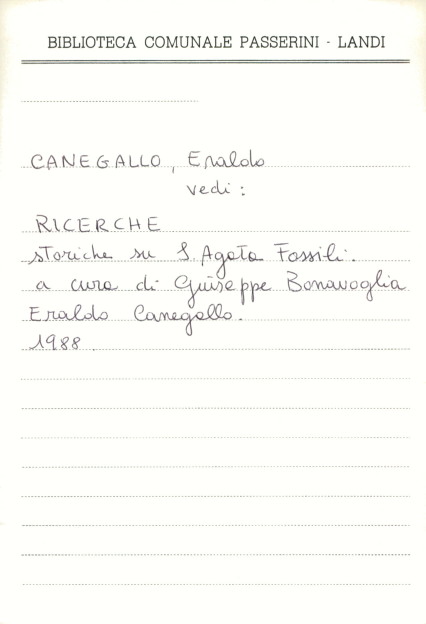 BIBLIOTECA COMUNALE PASSERINI - LANDI
CANEGALLO, Eraldo
vedi:
RICERCHE
storiche su S. Agata Fossili.
a cura di Giuseppe Bonavoglia
Eraldo Canegallo.
1988